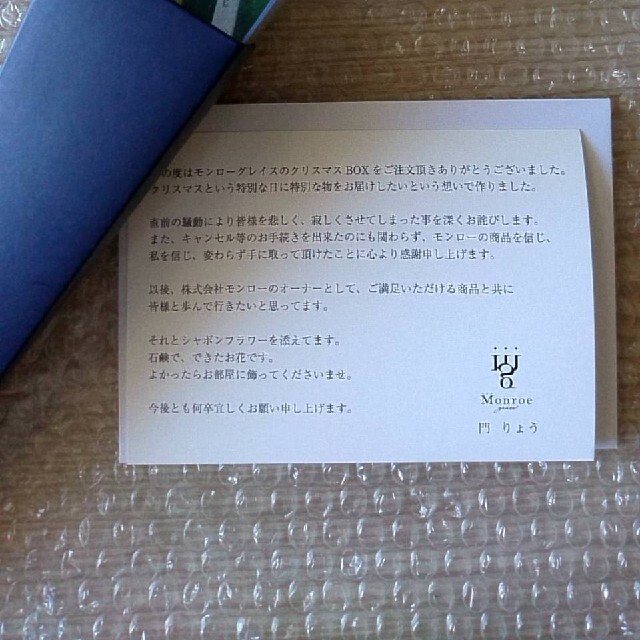 の度はモンローグレイスのクリスマスBOXをご注文頂きありがとうございました。
クリスマスという特別な日に特別な物をお届けしたいという想いで作りました。
直前の騒動により皆様を悲しく、寂しくさせてしまった事を深くお詫びします。
また、キャンセル等のお手続きを出来たのにも関わらず、モンローの商品を信じ、
私を信じ、変わらず手に取って頂けたことに心より感謝申し上げます。
以後、株式会社モンローのオーナーとして、ご満足いただける商品と共に
皆様と歩んで行きたいと思ってます。
それとシャボンフラワーを添えてます。
石鹸で、できたお花です。
よかったらお部屋に飾ってくださいませ。
今後とも何卒宜しくお願い申し上げます。
Monroe
門 りょう